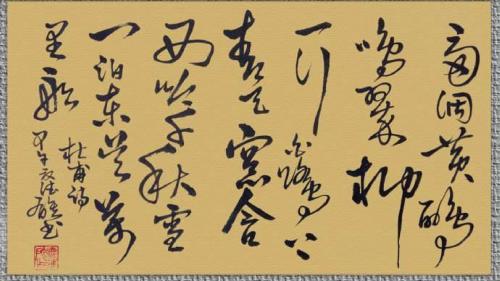 两個黄鹂
鸣翠柳
一行白鹭上
青天窗含
西岭千秋雪
门泊东吴万
里船
杜甫诗
甲午
书